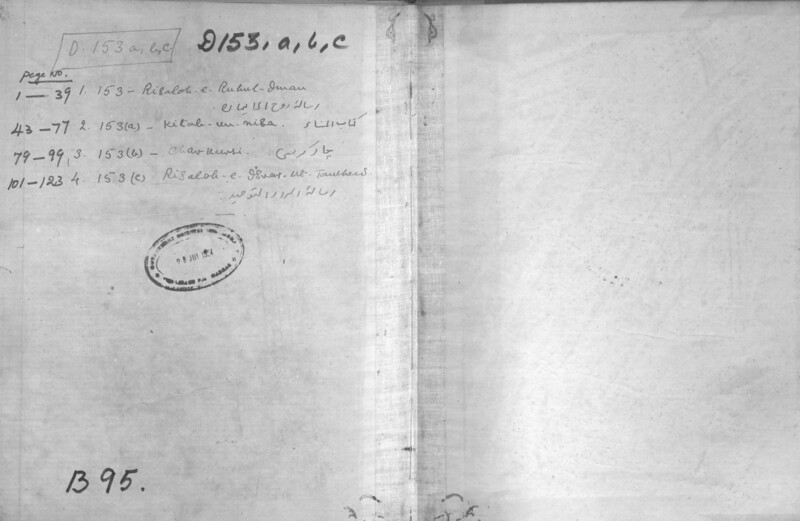 D. 153 a, b, c
D153, a, b, c
Page No.
1 — 39 1. 153 – Risalah-e-Ruhul-Iman
رسالہ روح الایمان
43 – 77 2. 153(a) – Kitab-un-nisa. کتاب النساء
79 – 99, 3. 153(b) – Charkursi. چار کرسی
101 – 123 4. 153(c) Risalah-e-Israr-ut-Tauheed
رسالہ اسرار التوحید
B 95.